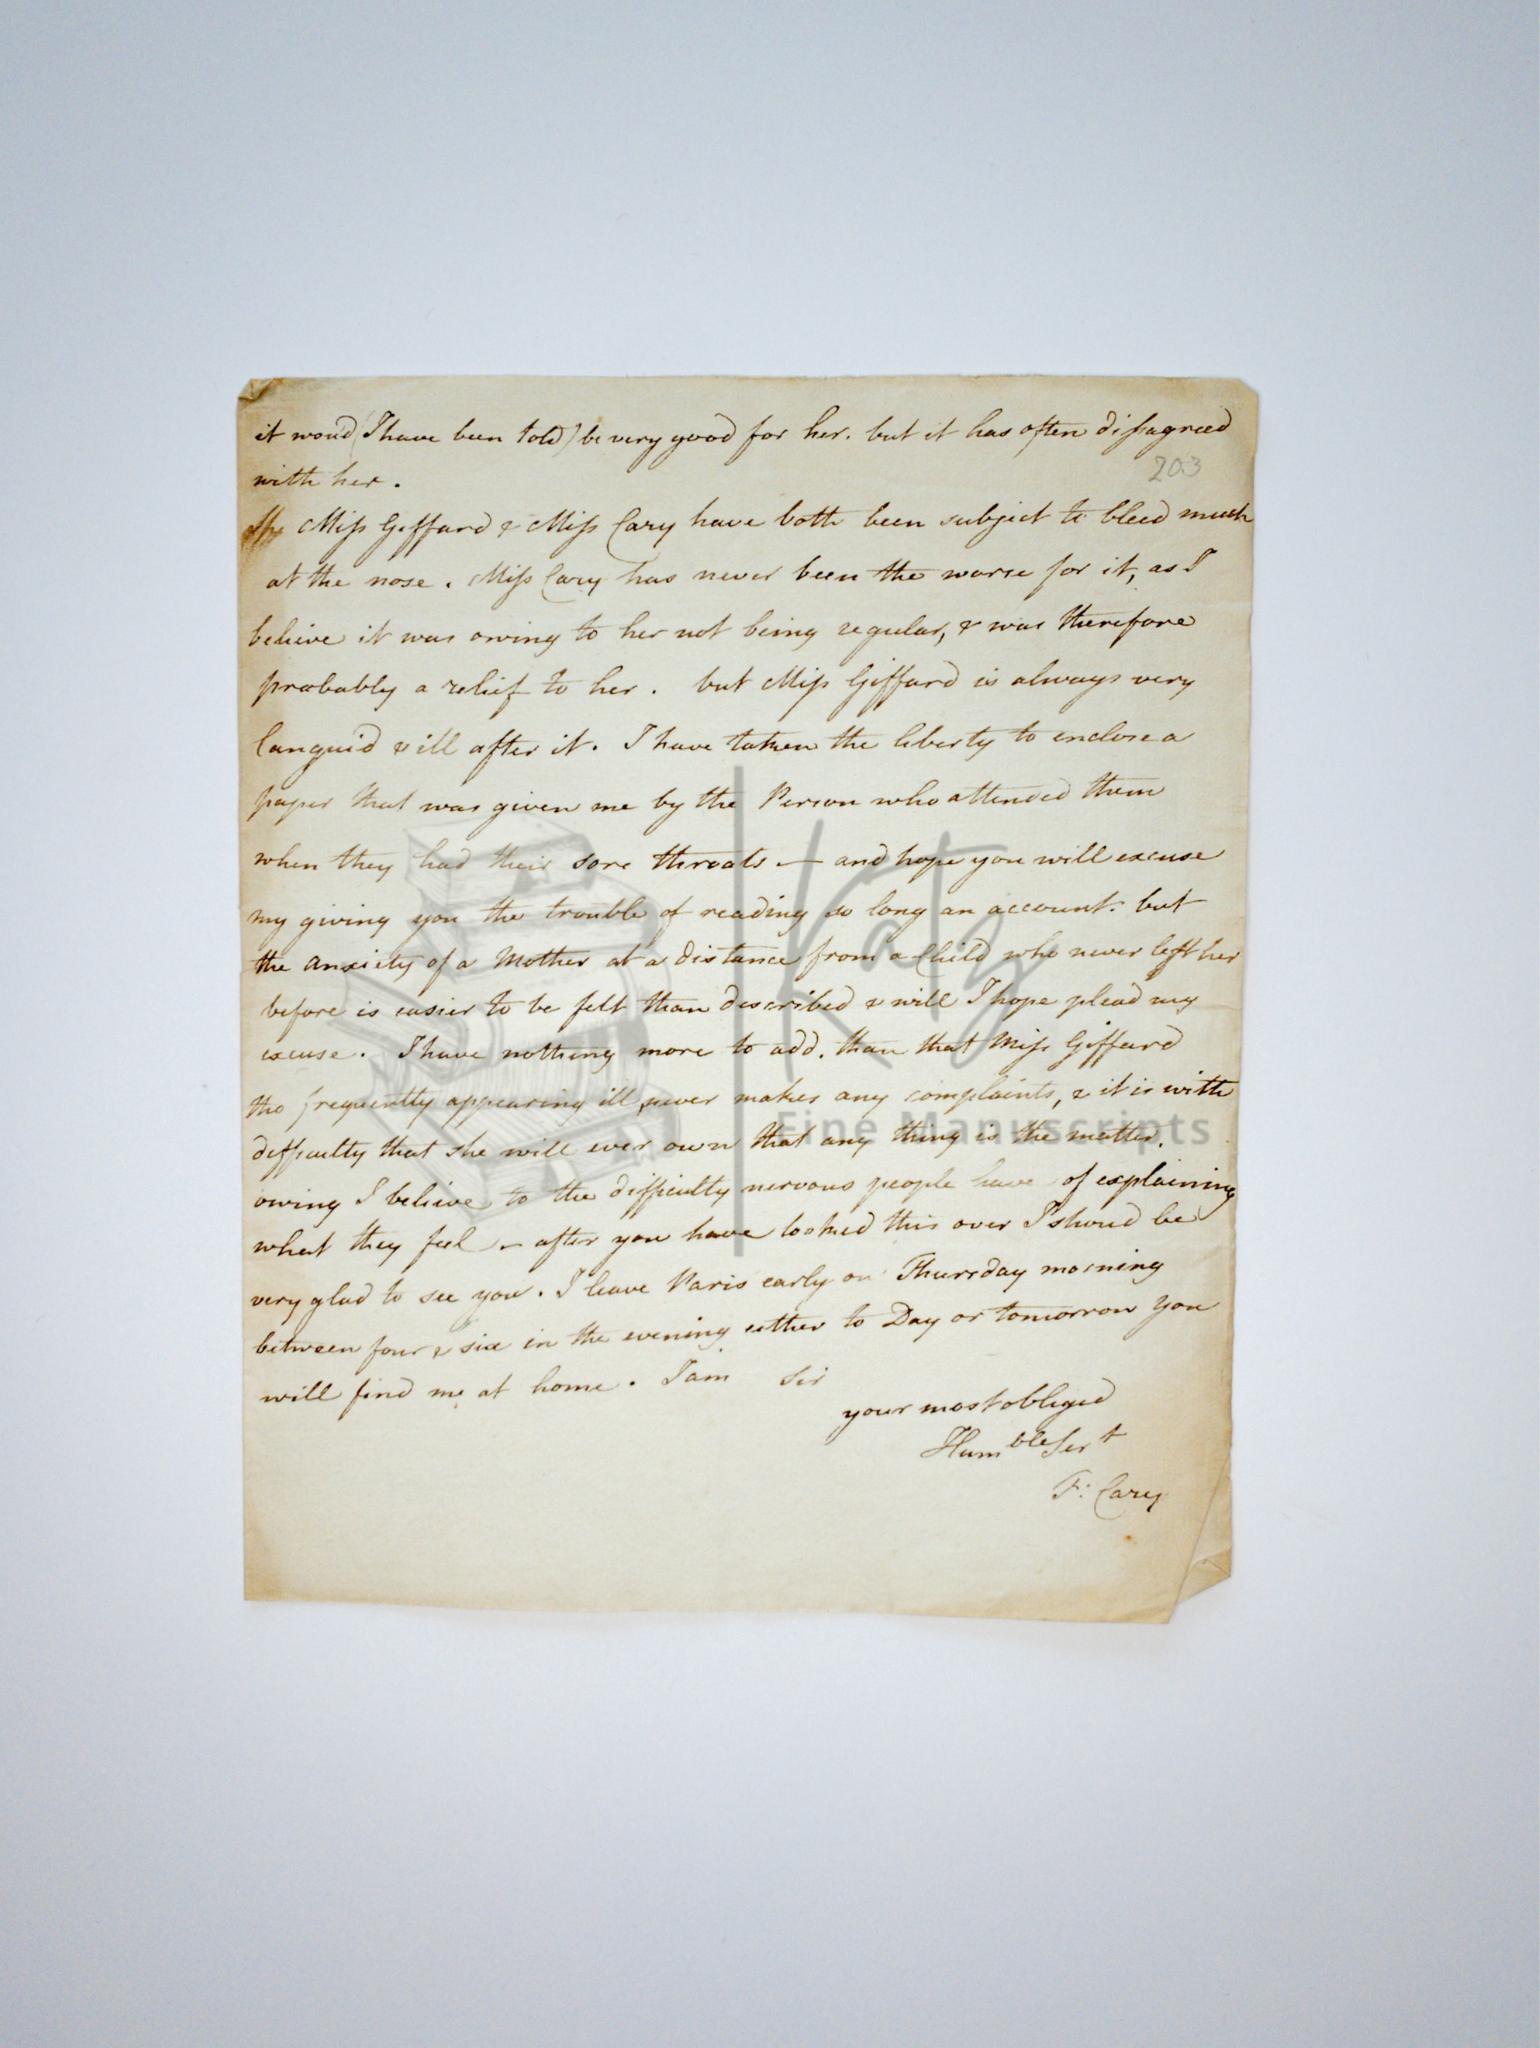 it woud (I have been told) be very good for her. but it has often dissagreed
203
with her.
Miss Giffard & Miss Cary have both been subject to bleed much
at the nose. Miss Cary has never been the worse for it, as I
believe it was owing to her not being regular, & was therefore
probably a relief to her. but Miss Giffard is always very
languid & ill after it. I have taken the liberty to enclose a
paper that was given me by the Person who attended them
when they had their sore throats — and hope you will excuse
my giving you the trouble of reading so long an account. but
the anxiety of a Mother at a distance from a Child who never left her
before is easier to be felt than described & will I hope plead my
excuse. I have nothing more to add. than that Miss Giffard
tho frequently appearing ill, never makes any complaints, & it is with
difficulty that she will ever own that any thing is the matter.
owing I believe to the difficulty nervous people have of explaining
what they feel — after you have looked this over I shoud be
very glad to see you. I leave Paris early on Thursday morning
between four & six in the evening either to Day or tomorrow you
will find me at home. I am Sir
your most obliged
Humble Sert
F: Cary
Katz
Fine Manuscripts